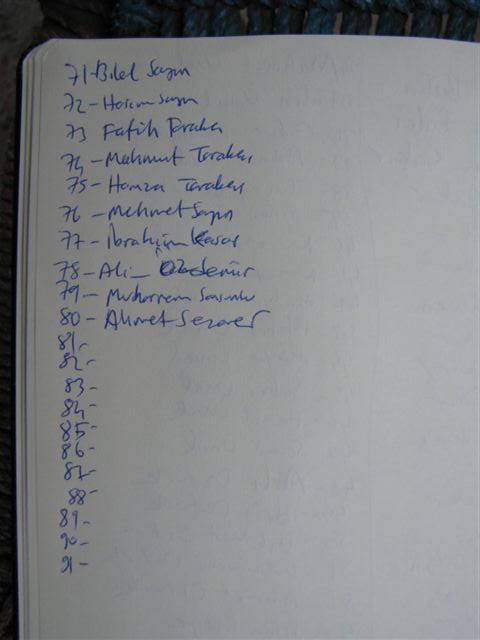 71-Bilal Sayın
72-Harun Sayın
73 Fatih Tarakcı
74-Mahmut Tarakcı
75-Hamza Tarakcı
76-Mehmet Sayın
77-İbrahim
78-Ali-
79-Muharrem
80-Ahmet Sezer
81-
82-
83-
84-
85-
86-
87-
88-
89-
90-
91-